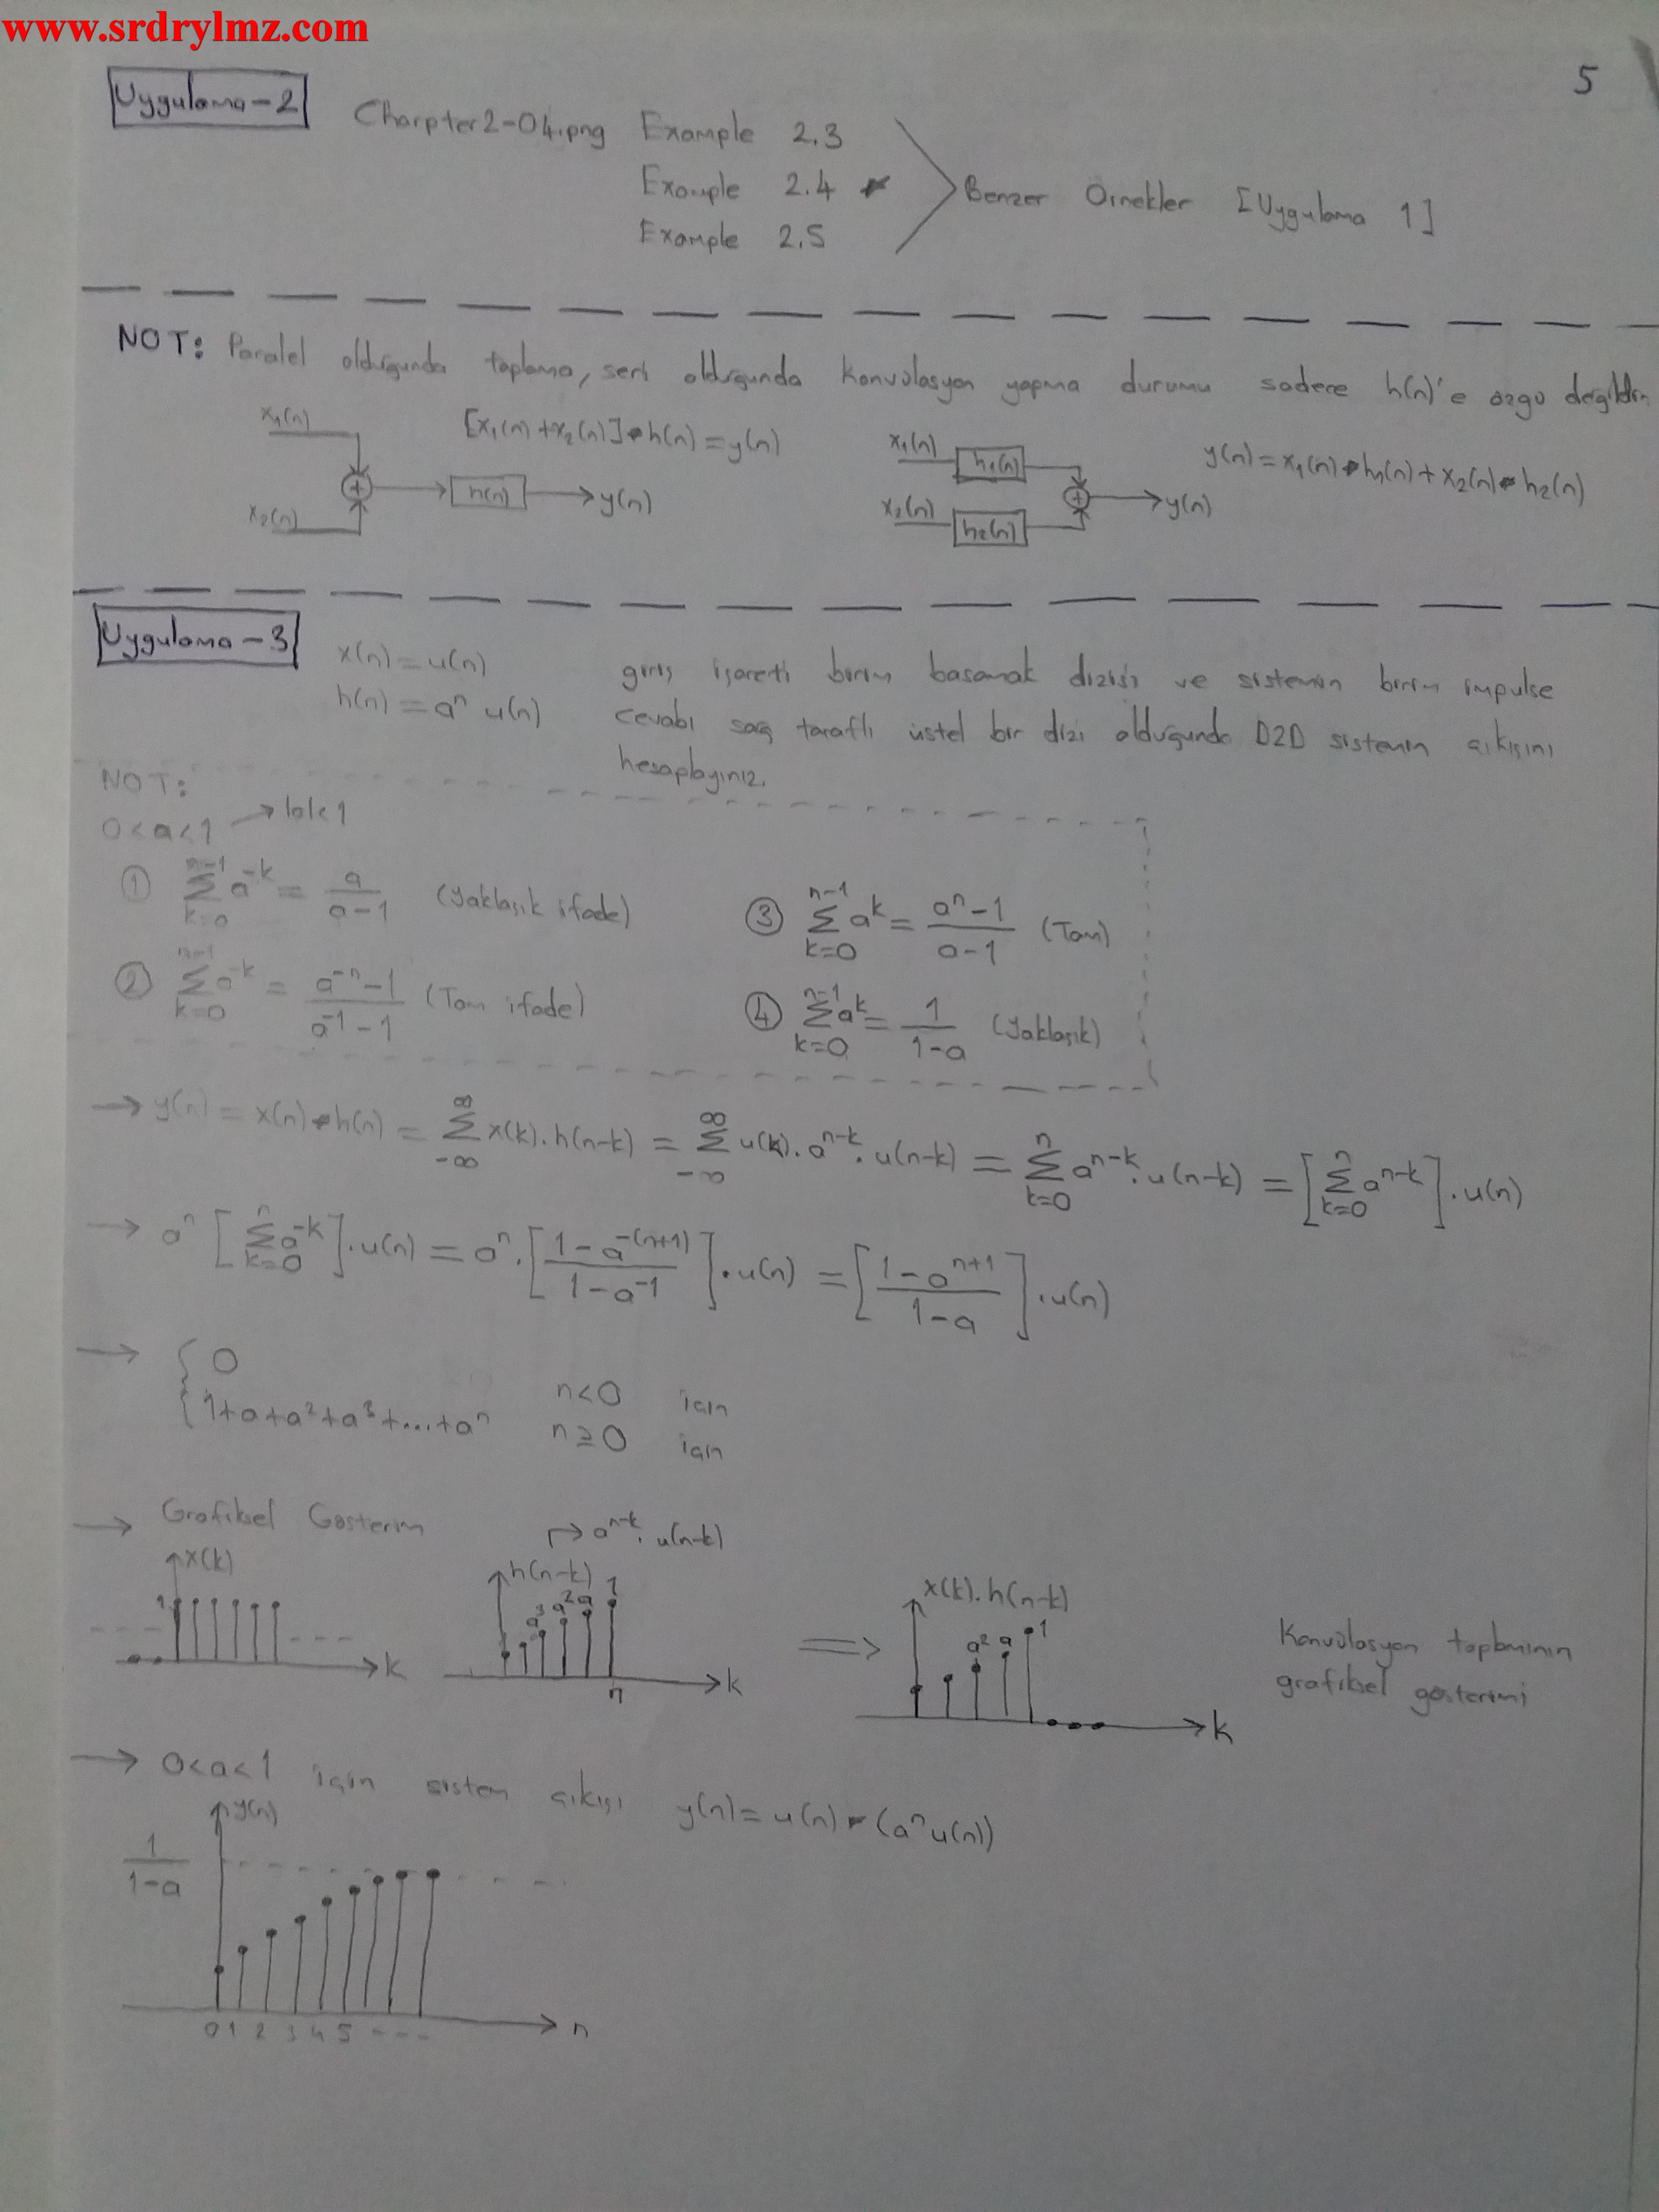 www.srdrylmz.com
5
Uygulama-2
Charpter2-04.png Example 2.3
Example 2.4 *
Example 2.5
Benzer Örnekler [Uygulama 1]
NOT: Paralel olduğunda toplama, seri olduğunda konvülasyon yapma durumu sadece h(n)'e özgü değildir.
x₁(n)
x₂(n)
+
h(n)
y(n)
[x₁(n)+x₂(n)]*h(n)=y(n)
x₁(n)
h₁(n)
x₂(n)
h₂(n)
+
y(n)
y(n)=x₁(n)*h₁(n)+x₂(n)*h₂(n)
Uygulama-3
x(n)=u(n)
h(n)=aⁿ u(n)
giriş işareti birim basamak dizisi ve sistemin birim impulse
cevabı sağ taraflı üstel bir dizi olduğunda D2D sistemin çıkışını
hesaplayınız.
NOT:
0<a<1 → |a|<1
① Σ_{k=0}^{n-1} a^{-k} = a/(a-1) (Yaklaşık ifade)
② Σ_{k=0}^{n-1} a^{-k} = (a^{-n}-1)/(a^{-1}-1) (Tam ifade)
③ Σ_{k=0}^{n-1} a^k = (aⁿ-1)/(a-1) (Tam)
④ Σ_{k=0}^{n-1} a^k = 1/(1-a) (Yaklaşık)
→ y(n) = x(n)*h(n) = Σ_{-∞}^{∞} x(k).h(n-k) = Σ_{-∞}^{∞} u(k).a^{n-k}.u(n-k) = Σ_{k=0}^{n} a^{n-k}.u(n-k) = [Σ_{k=0}^{n} a^{n-k}].u(n)
→ aⁿ [Σ_{k=0}^{n} a^{-k}].u(n) = aⁿ.[(1-a^{-(n+1)})/(1-a^{-1})].u(n) = [(1-a^{n+1})/(1-a)].u(n)
→ { 0 n<0 için
{ 1+a+a²+a³+...+aⁿ n≥0 için
→ Grafiksel Gösterim
x(k)
1
k
→ a^{n-k}.u(n-k)
h(n-k)
a³ a² a 1
n
k
⇒
x(k).h(n-k)
a² a 1
k
Konvülasyon toplamının
grafiksel gösterimi
→ 0<a<1 için sistem çıkışı y(n)=u(n)*(aⁿu(n))
y(n)
1/(1-a)
0 1 2 3 4 5 ---
n